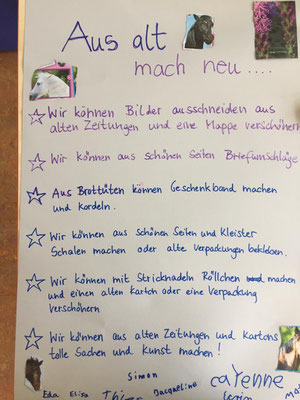 Aus alt
mach neu....
Wir können Bilder ausschneiden aus
alten Zeitungen und eine Mappe verschönern
Wir können aus schönen Seiten Briefumschläge
Aus Brottüten können Geschenkband machen
und Kordeln.
Wir können aus schönen Seiten und Kleister
Schalen machen oder alte Verpackungen bekleben.
Wir können mit Stricknadeln Röllchen machen
und einen alten Karton oder eine Verpackung
verschönern
Wir können aus alten Zeitungen und Kartons
tolle Sachen und Kunst machen!
Simon
Eda Elisa Jacqueline Cayenne